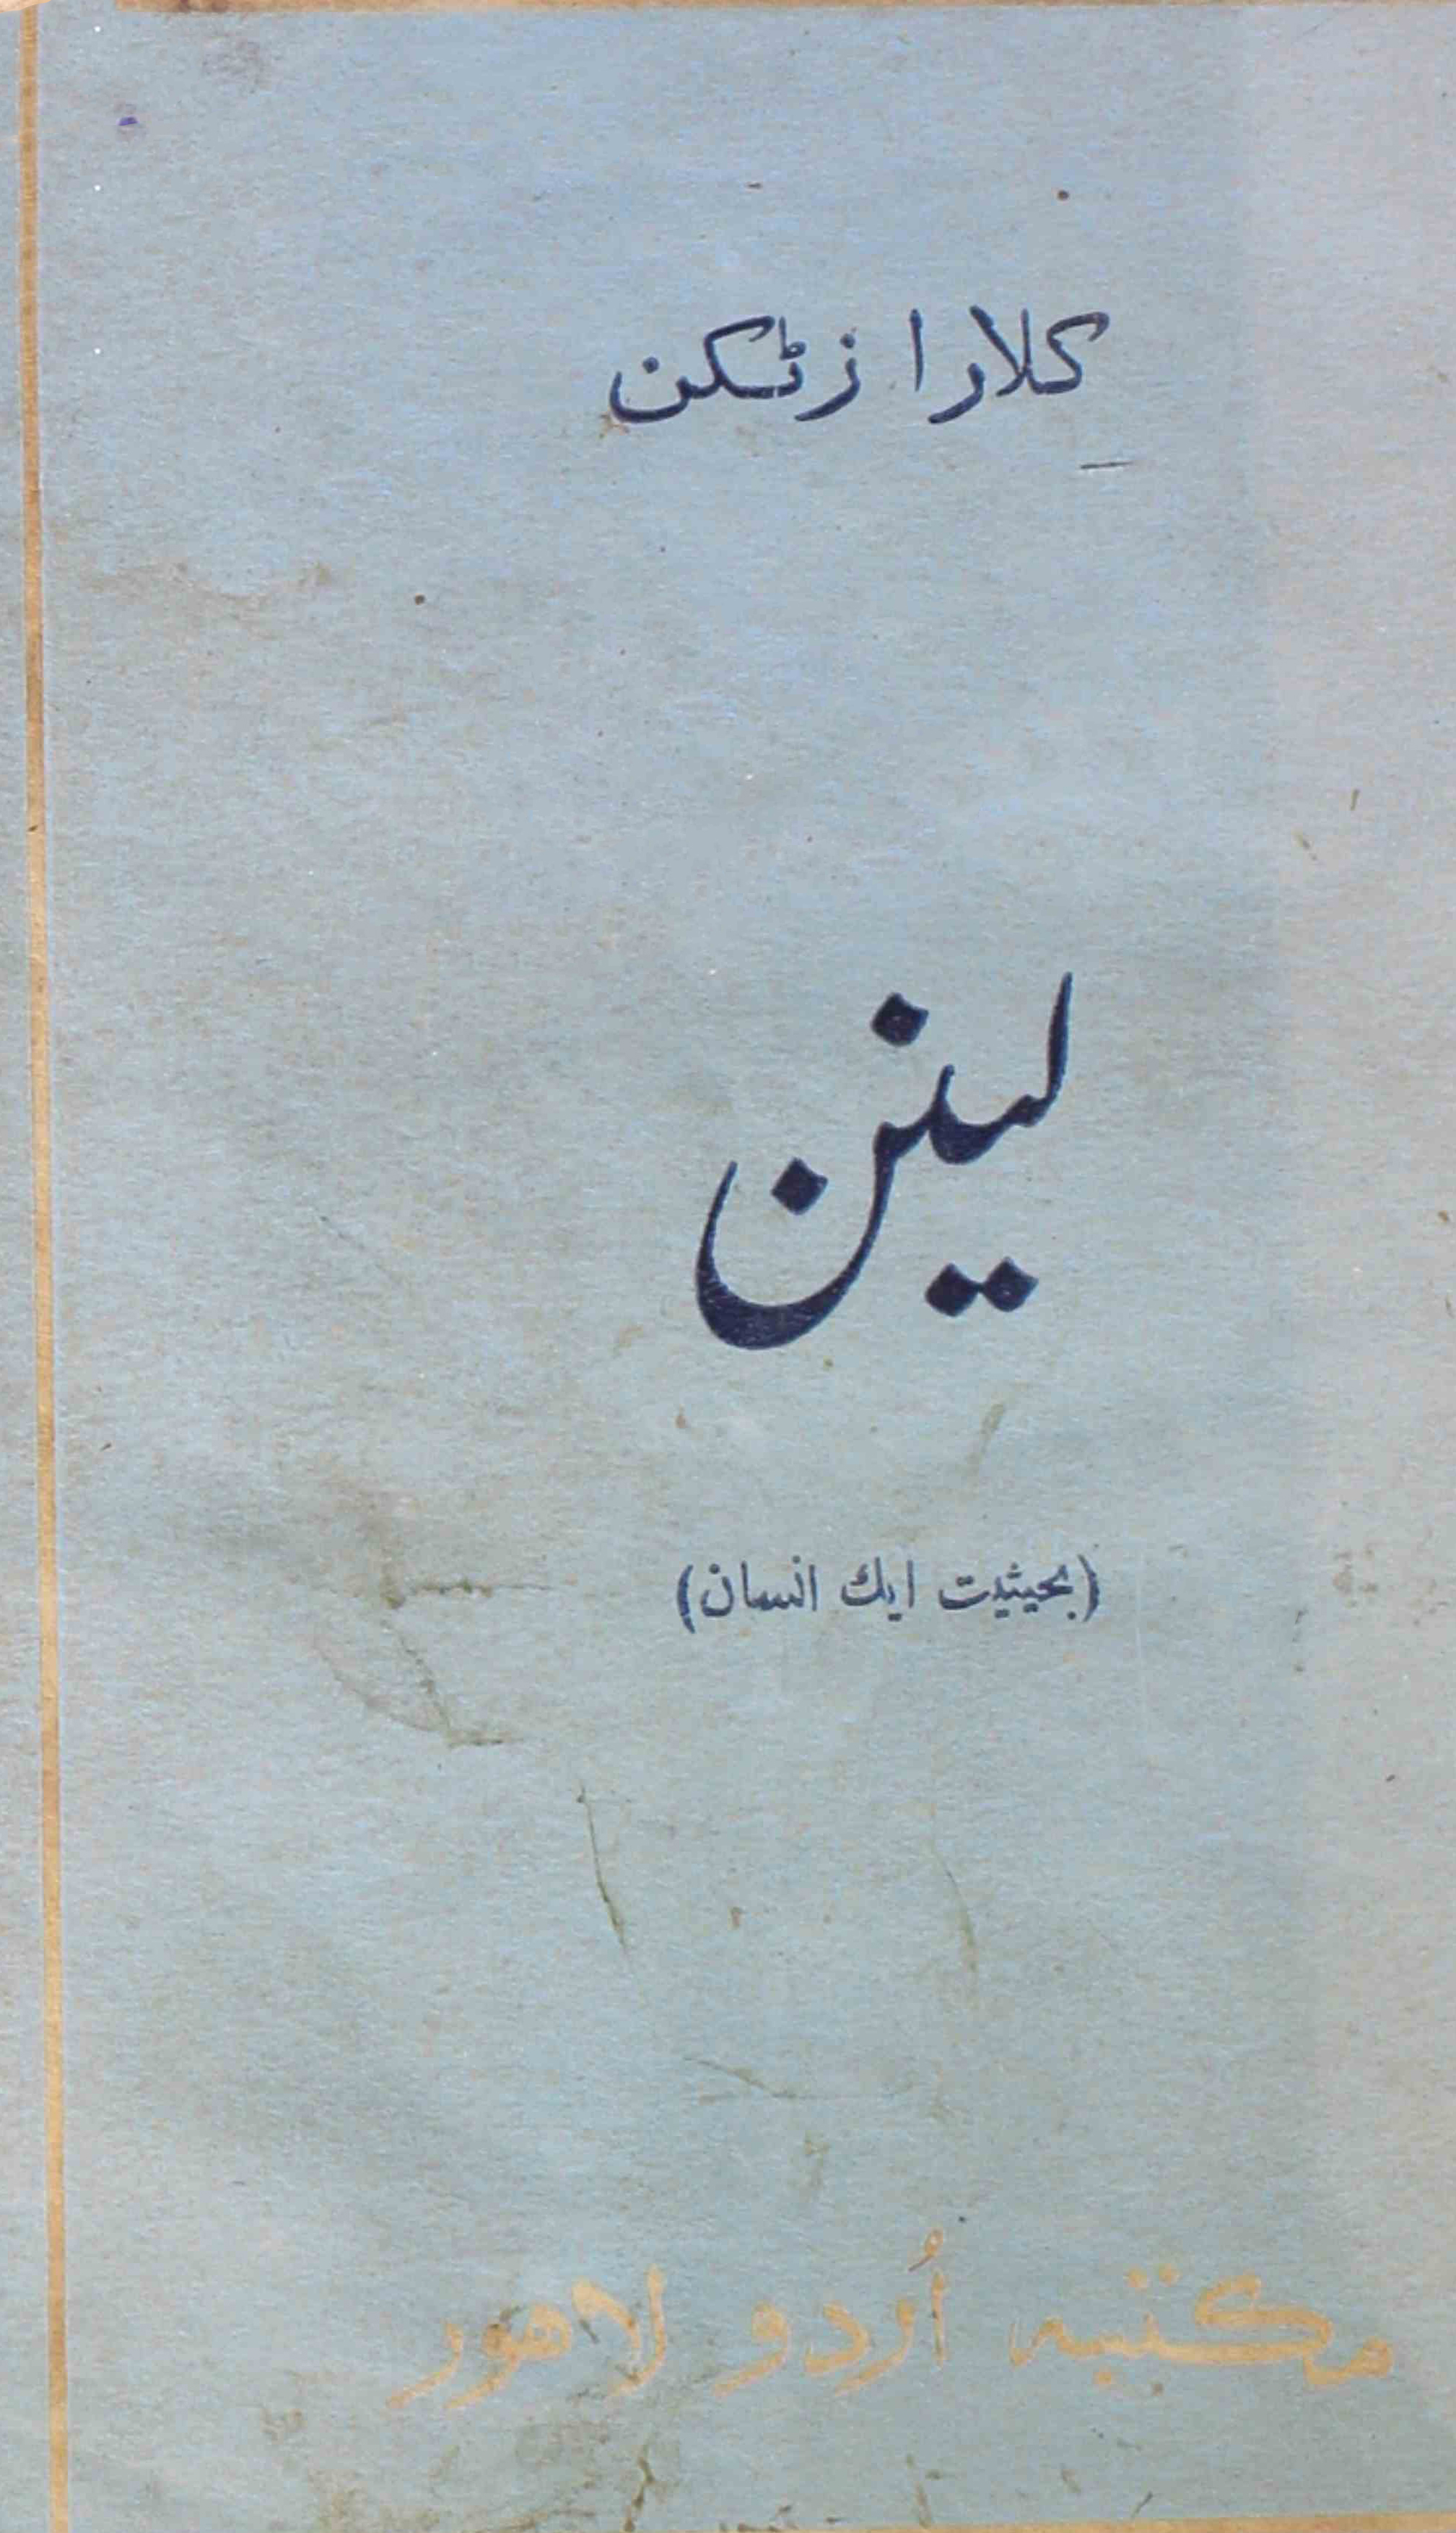 کلارا زٹکن
لینن
(بحیثیت ایک انسان)
مکتبہ اُردو لاهور